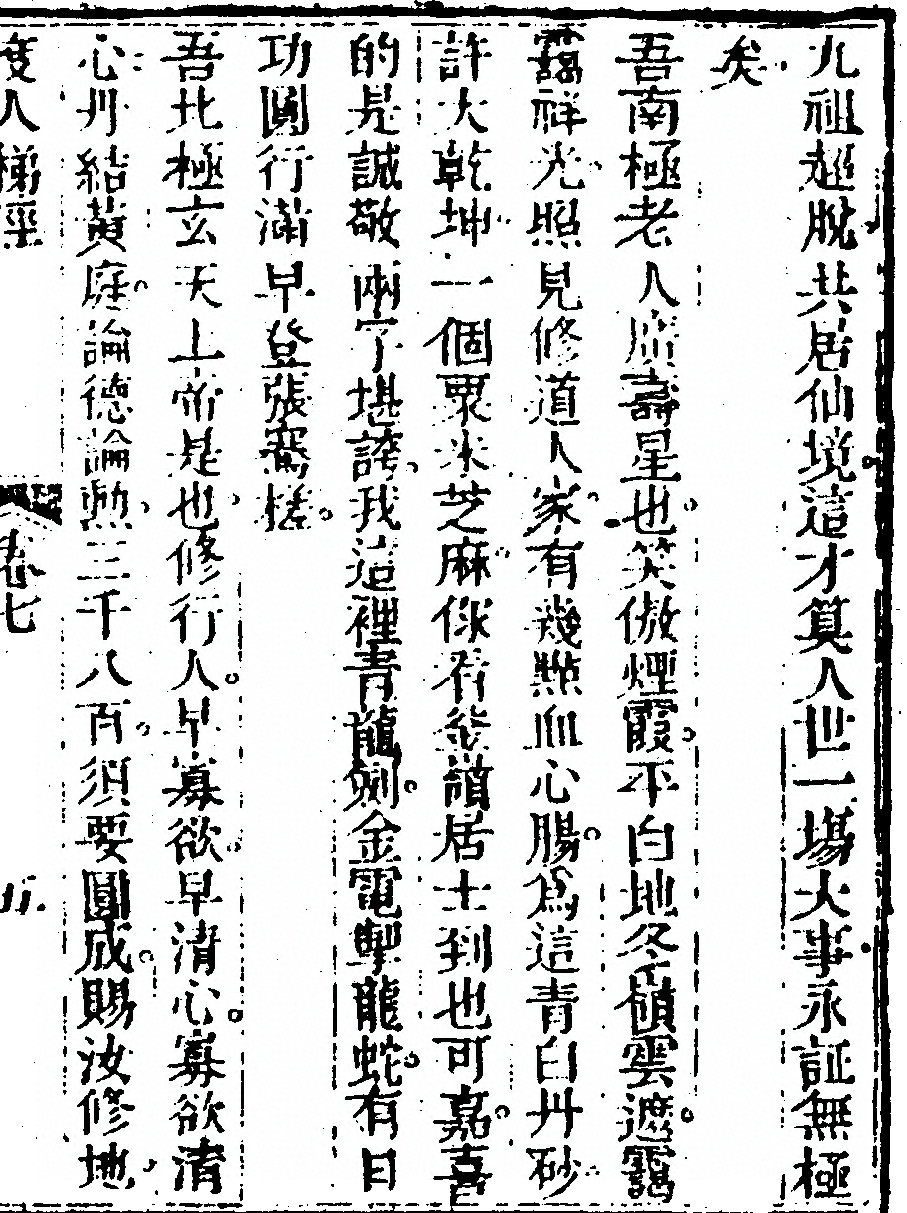 九祖超脫共居仙境這才算人世一塲大事永証無極
矣
吾南極老人應壽星也笑傲煙霞不白地冬嶺雲遮靄
靄祥光照見修道人家有幾點血心腸爲這青白丹砂
許大乾坤一個粟米芝麻你看爾讀居士到也可嘉喜
的是誠敬兩字堪誇我這裡青龍劍金電掣龍蛇有日
功圓行滿早登張騫槎
吾北極玄天上帝是也修行人早寡欲早清心寡欲清
心丹結黃庭論德論勲三千八百須要圓成賜汝修地
度人梯徑 卷七